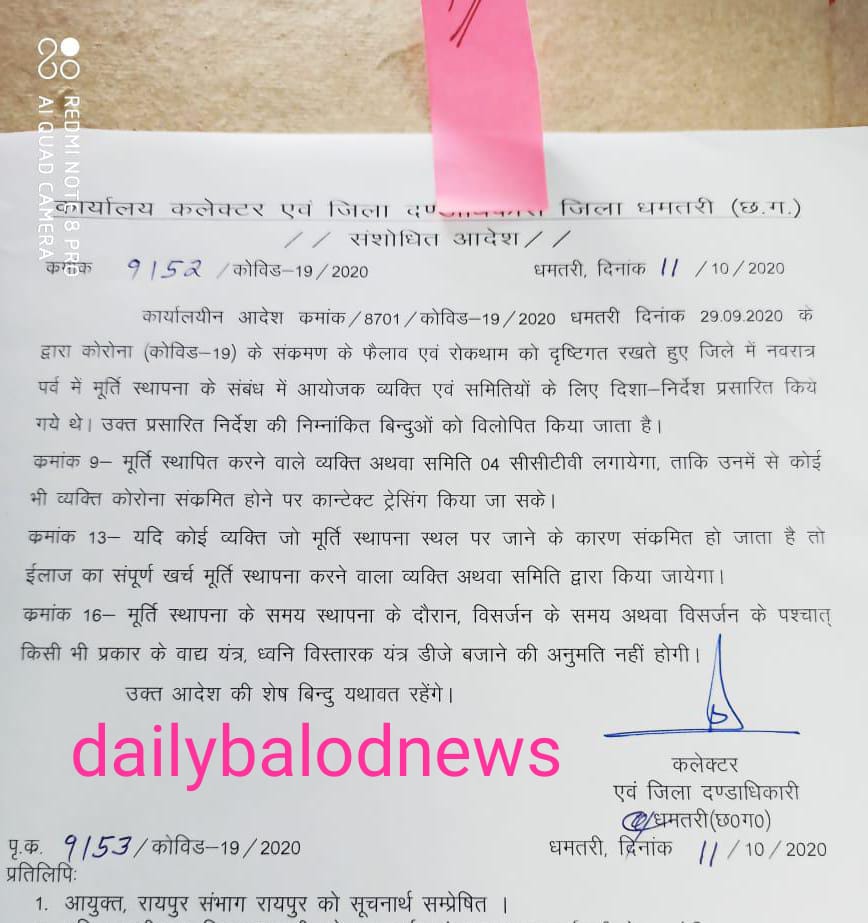 REDMI NOTE 8 PRO
AI QUAD CAMERA
कार्यालय कलेक्टर एवं जिला दण्डाधिकारी जिला धमतरी (छ.ग.)
// संशोधित आदेश//
कमांक 9152 /कोविड–19/2020 धमतरी, दिनांक 11 /10/2020
कार्यालयीन आदेश कमांक/8701/कोविड–19/2020 धमतरी दिनांक 29.09.2020 के
द्वारा कोरोना (कोविड–19) के संकमण के फैलाव एवं रोकथाम को दृष्टिगत रखते हुए जिले में नवरात्र
पर्व में मूर्ति स्थापना के संबंध में आयोजक व्यक्ति एवं समितियों के लिए दिशा–निर्देश प्रसारित किये
गये थे। उक्त प्रसारित निर्देश की निम्नांकित बिन्दुओं को विलोपित किया जाता है।
कमांक 9– मूर्ति स्थापित करने वाले व्यक्ति अथवा समिति 04 सीसीटीवी लगायेगा, ताकि उनमें से कोई
भी व्यक्ति कोरोना संकमित होने पर कान्टेक्ट ट्रेसिंग किया जा सके।
कमांक 13– यदि कोई व्यक्ति जो मूर्ति स्थापना स्थल पर जाने के कारण संकमित हो जाता है तो
ईलाज का संपूर्ण खर्च मूर्ति स्थापना करने वाला व्यक्ति अथवा समिति द्वारा किया जायेगा।
कमांक 16– मूर्ति स्थापना के समय स्थापना के दौरान, विसर्जन के समय अथवा विसर्जन के पश्चात्
किसी भी प्रकार के वाद्य यंत्र, ध्वनि विस्तारक यंत्र डीजे बजाने की अनुमति नहीं होगी।
उक्त आदेश की शेष बिन्दु यथावत रहेंगे।
dailybalodnews
कलेक्टर
एवं जिला दण्डाधिकारी
धमतरी(छ०ग०)
पृ.क. 9153/कोविड–19/2020 धमतरी, दिनांक 11/10/2020
प्रतिलिपिः
1. आयुक्त, रायपुर संभाग रायपुर को सूचनार्थ सम्प्रेषित ।